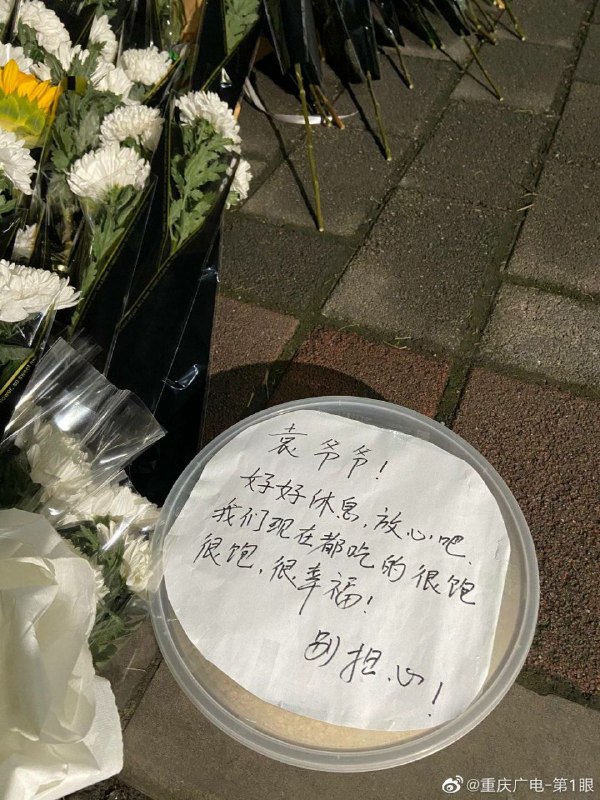 袁爷爷!
好好休息,放心吧.
我们现在都吃的很饱
很饱,很幸福!
别担心!
@重庆广电-第1眼